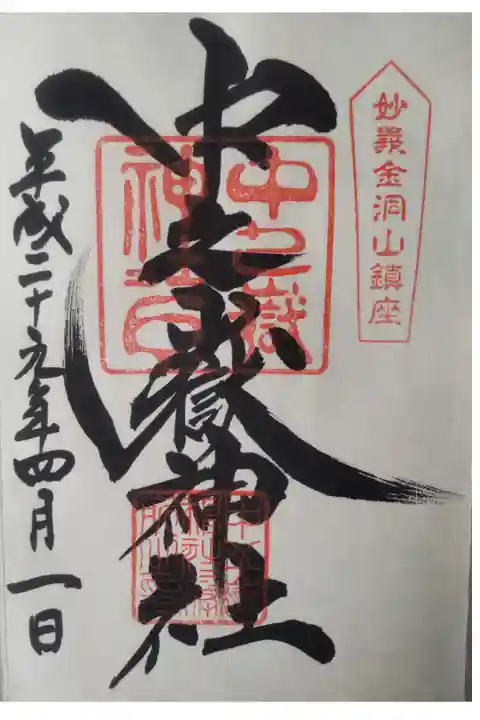 妙義金洞山鎮座
中之嶽神社
中之嶽
平成二十九年四月一日